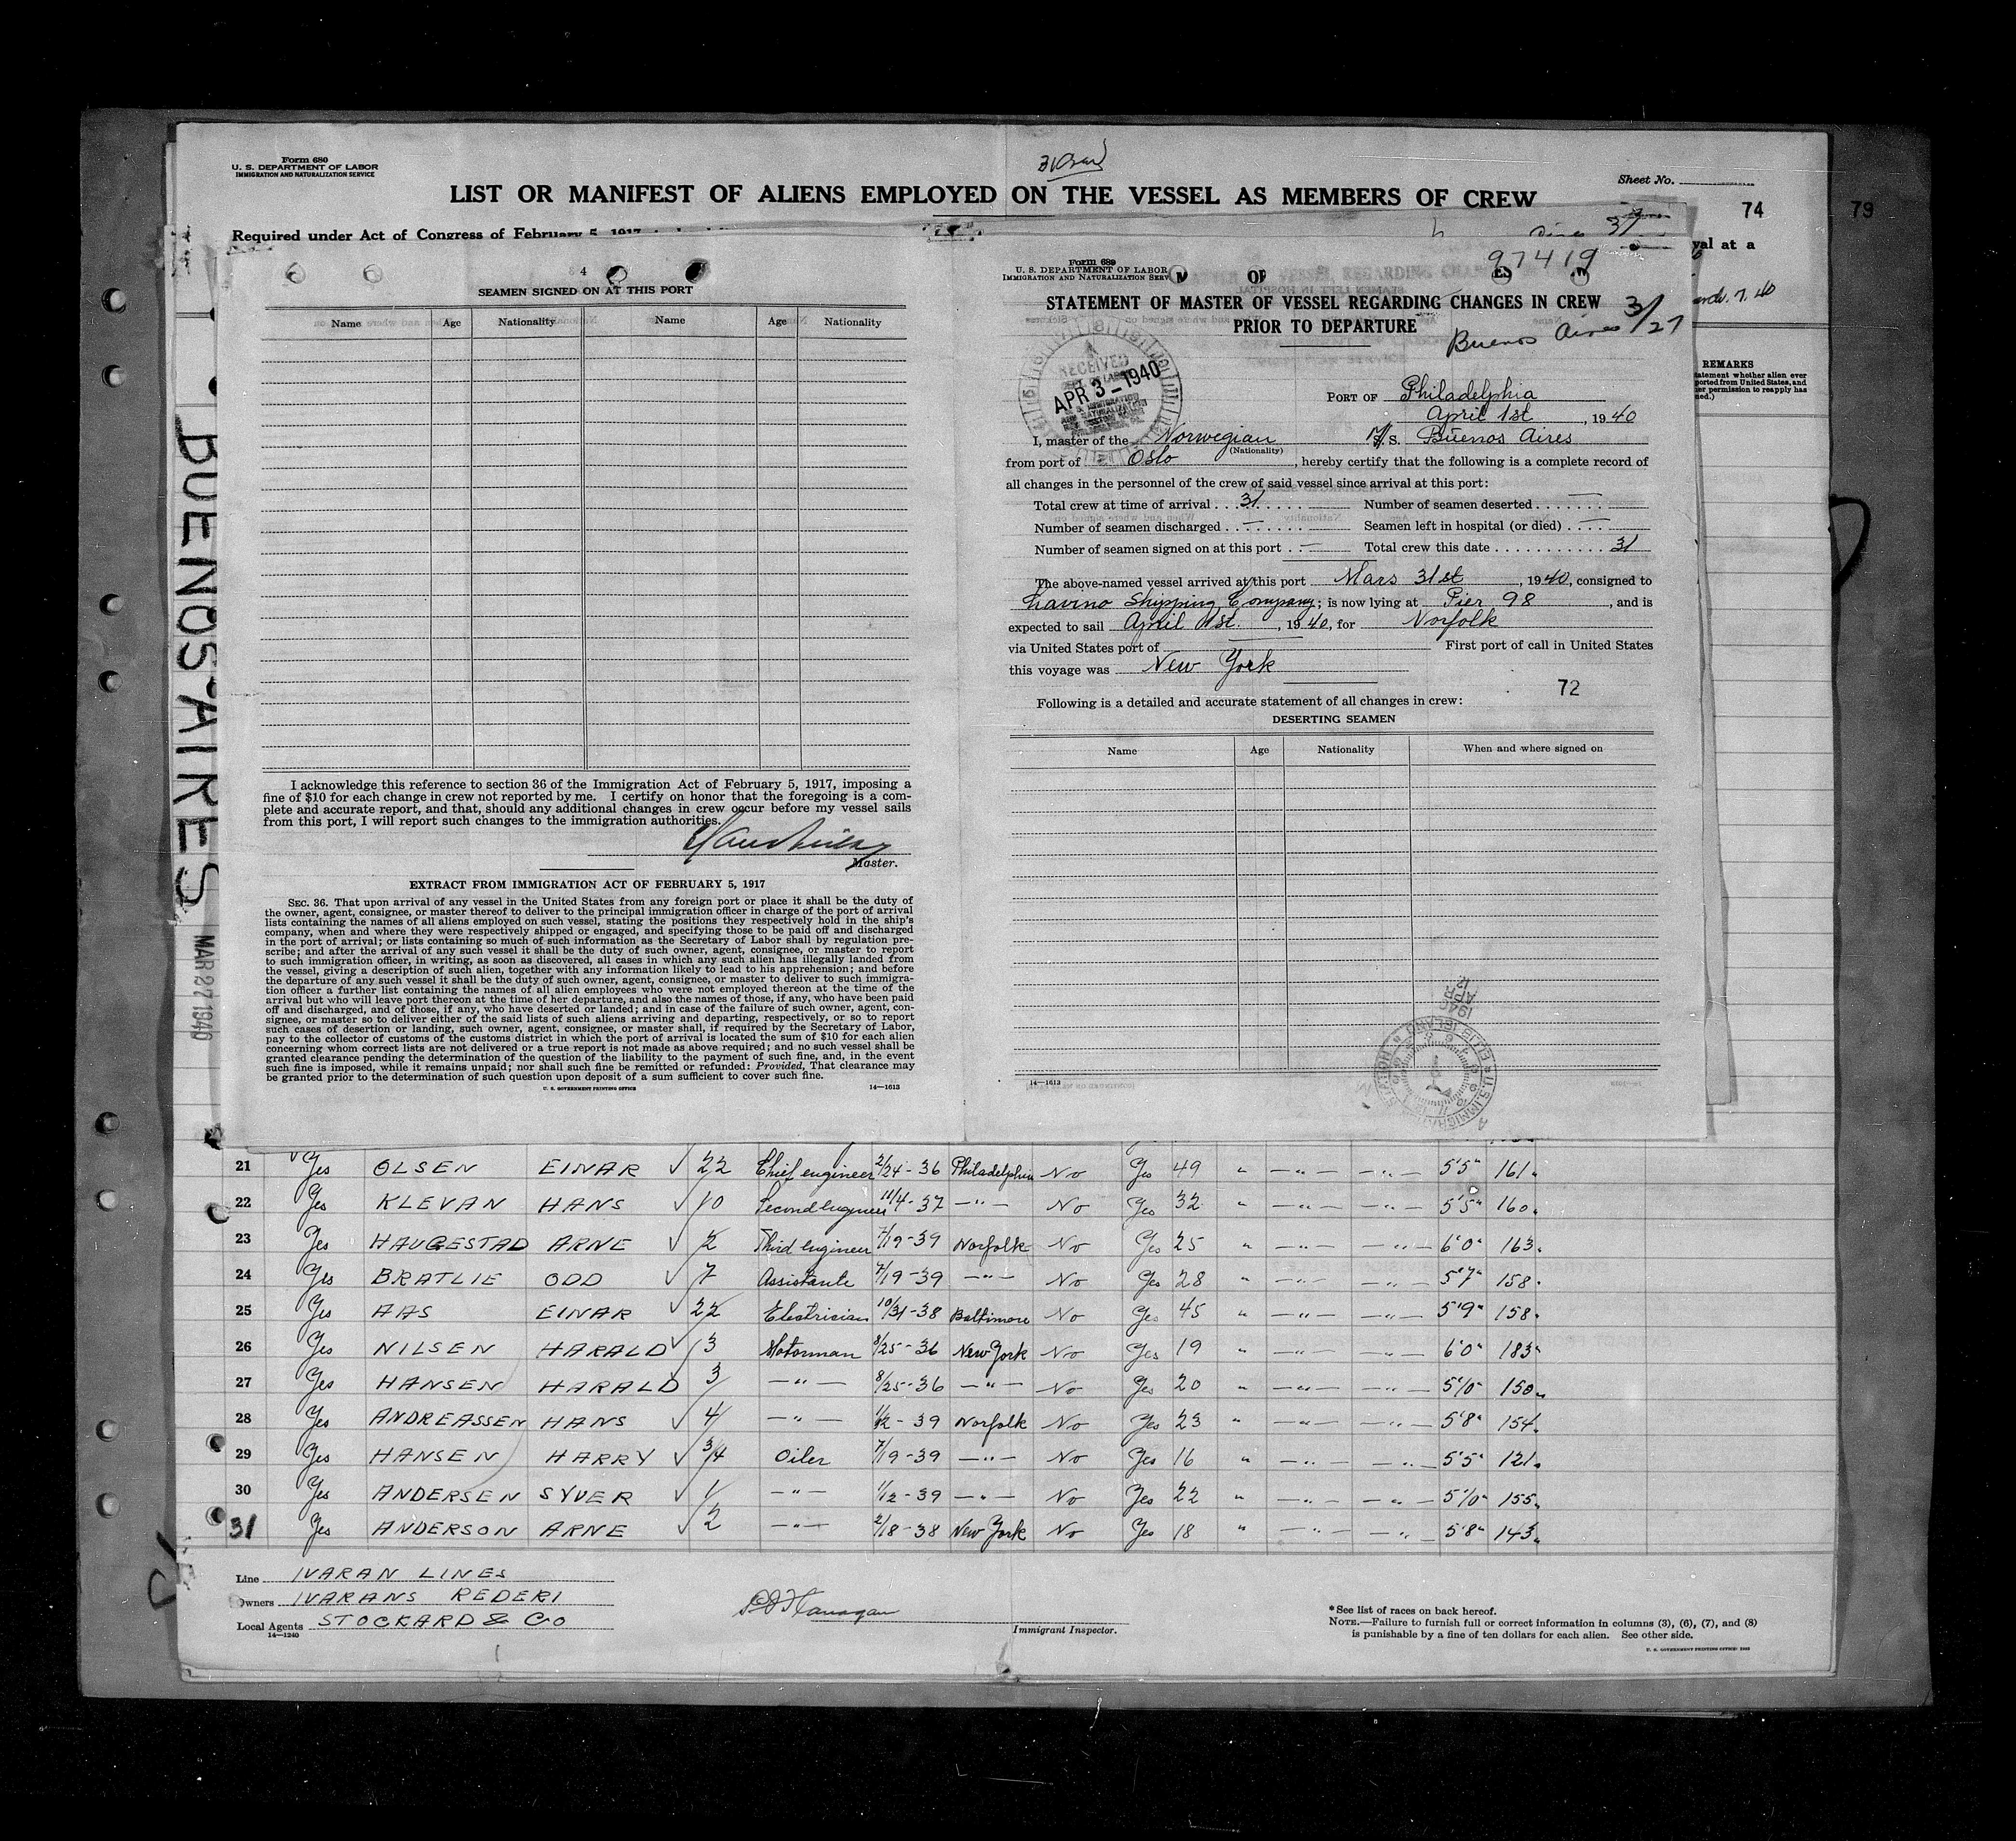 Form 680
U. S. DEPARTMENT OF LABOR
IMMIGRATION AND NATURALIZATION SERVICE
Sheet No.
LIST OR MANIFEST OF ALIENS EMPLOYED ON THE VESSEL AS MEMBERS OF CREW
74
79
Required under Act of Congress of February 5, 1917
val at a
REMARKS
BUENOS AIRES
MAR 27 1940
4
SEAMEN SIGNED ON AT THIS PORT
Name Age Nationality Name Age Nationality
I acknowledge this reference to section 36 of the Immigration Act of February 5, 1917, imposing a
fine of $10 for each change in crew not reported by me. I certify on honor that the foregoing is a com-
plete and accurate report, and that, should any additional changes in crew occur before my vessel sails
from this port, I will report such changes to the immigration authorities.
Master.
EXTRACT FROM IMMIGRATION ACT OF FEBRUARY 5, 1917
SEC. 36. That upon arrival of any vessel in the United States from any foreign port or place it shall be the duty of
the owner, agent, consignee, or master thereof to deliver to the principal immigration officer in charge of the port of arrival
lists containing the names of all aliens employed on such vessel, stating the positions they respectively hold in the ship's
company, when and where they were respectively shipped or engaged, and specifying those to be paid off and discharged
in the port of arrival; or lists containing so much of such information as the Secretary of Labor shall by regulation pre-
scribe; and after the arrival of any such vessel it shall be the duty of such owner, agent, consignee, or master to report
to such immigration officer, in writing, as soon as discovered, all cases in which any such alien has illegally landed from
the vessel, giving a description of such alien, together with any information likely to lead to his apprehension; and before
the departure of any such vessel it shall be the duty of such owner, agent, consignee, or master to deliver to such immigra-
tion officer a further list containing the names of all alien employees who were not employed thereon at the time of the
arrival but who will leave port thereon at the time of her departure, and also the names of those, if any, who have been paid
off and discharged, and of those, if any, who have deserted or landed; and in case of the failure of such owner, agent, con-
signee, or master so to deliver either of the said lists of such aliens arriving and departing, respectively, or so to report
such cases of desertion or landing, such owner, agent, consignee, or master shall, if required by the Secretary of Labor,
pay to the collector of customs of the customs district in which the port of arrival is located the sum of $10 for each alien
concerning whom correct lists are not delivered or a true report is not made as above required; and no such vessel shall be
granted clearance pending the determination of the question of the liability to the payment of such fine, and, in the event
such fine is imposed, while it remains unpaid; nor shall such fine be remitted or refunded: Provided, That clearance may
be granted prior to the determination of such question upon deposit of a sum sufficient to cover such fine.
U. S. GOVERNMENT PRINTING OFFICE 14—1613
Form 689
U. S. DEPARTMENT OF LABOR
IMMIGRATION AND NATURALIZATION SERV
97419
STATEMENT OF MASTER OF VESSEL REGARDING CHANGES IN CREW
PRIOR TO DEPARTURE
3/27
Buenos Aires
RECEIVED
APR 3 - 1940
PORT OF Philadelphia
April 1st, 1940
I, master of the Norwegian M/S. Buenos Aires
(Nationality)
from port of Oslo, hereby certify that the following is a complete record of
all changes in the personnel of the crew of said vessel since arrival at this port:
Total crew at time of arrival 31 Number of seamen deserted —
Number of seamen discharged — Seamen left in hospital (or died) —
Number of seamen signed on at this port — Total crew this date 31
The above-named vessel arrived at this port Mars 31st, 1940, consigned to
Lavino Shipping Company; is now lying at Pier 98, and is
expected to sail April 1st., 1940, for Norfolk
via United States port of — First port of call in United States
this voyage was New York
72
Following is a detailed and accurate statement of all changes in crew:
DESERTING SEAMEN
Name Age Nationality When and where signed on
14—1613
21 Yes OLSEN EINAR √ 22 Chief engineer 2/24-36 Philadelphia No Yes 49 " —"— —"— 5'5" 161.
22 Yes KLEVAN HANS √ 10 Second Engineer 11/4-37 —"— No Yes 32 " —"— —"— 5'5" 160.
23 Yes HAUGESTAD ARNE √ 2 Third engineer 7/19-39 Norfolk No Yes 25 " —"— —"— 6'0" 163.
24 Yes BRATLIE ODD √ 7 Assistante 7/19-39 —"— No Yes 28 " —"— —"— 5'7" 158.
25 Yes AAS EINAR √ 22 Electrician 10/31-38 Baltimore No Yes 45 " —"— —"— 5'9" 158.
26 Yes NILSEN HARALD √ 3 Motorman 8/25-36 New York No Yes 19 " —"— —"— 6'0" 183.
27 Yes HANSEN HARALD 3 —"— 8/25-36 —"— No Yes 20 " —"— —"— 5'10" 150.
28 Yes ANDREASSEN HANS √ 4 —"— 1/12-39 Norfolk No Yes 23 " —"— —"— 5'8" 154.
29 Yes HANSEN HARRY √ 3/4 Oiler 7/19-39 —"— No Yes 16 " —"— —"— 5'5" 121.
30 Yes ANDERSEN SYVER √ 1 —"— 1/12-39 —"— No Yes 22 " —"— —"— 5'10" 155.
31 Yes ANDERSON ARNE √ 2 —"— 2/18-38 New York No Yes 18 " —"— —"— 5'8" 143.
Line IVARAN LINES
Owners IVARANS REDERI
Local Agents STOCKARD & CO
14—1240
Immigrant Inspector.
*See list of races on back hereof.
NOTE.—Failure to furnish full or correct information in columns (3), (6), (7), and (8)
is punishable by a fine of ten dollars for each alien. See other side.